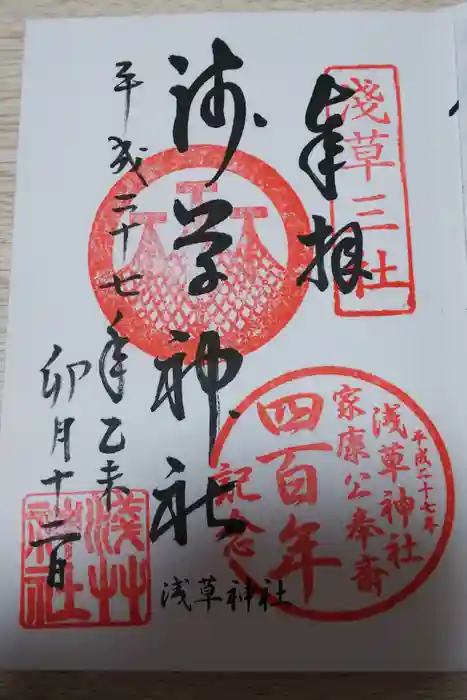 淺草三社
奉拝
浅草神社
平成二十七年乙未
卯月十二日
平成二十七年
浅草神社
家康公奉斎
四百年
記念
浅草神社
淺草
神社